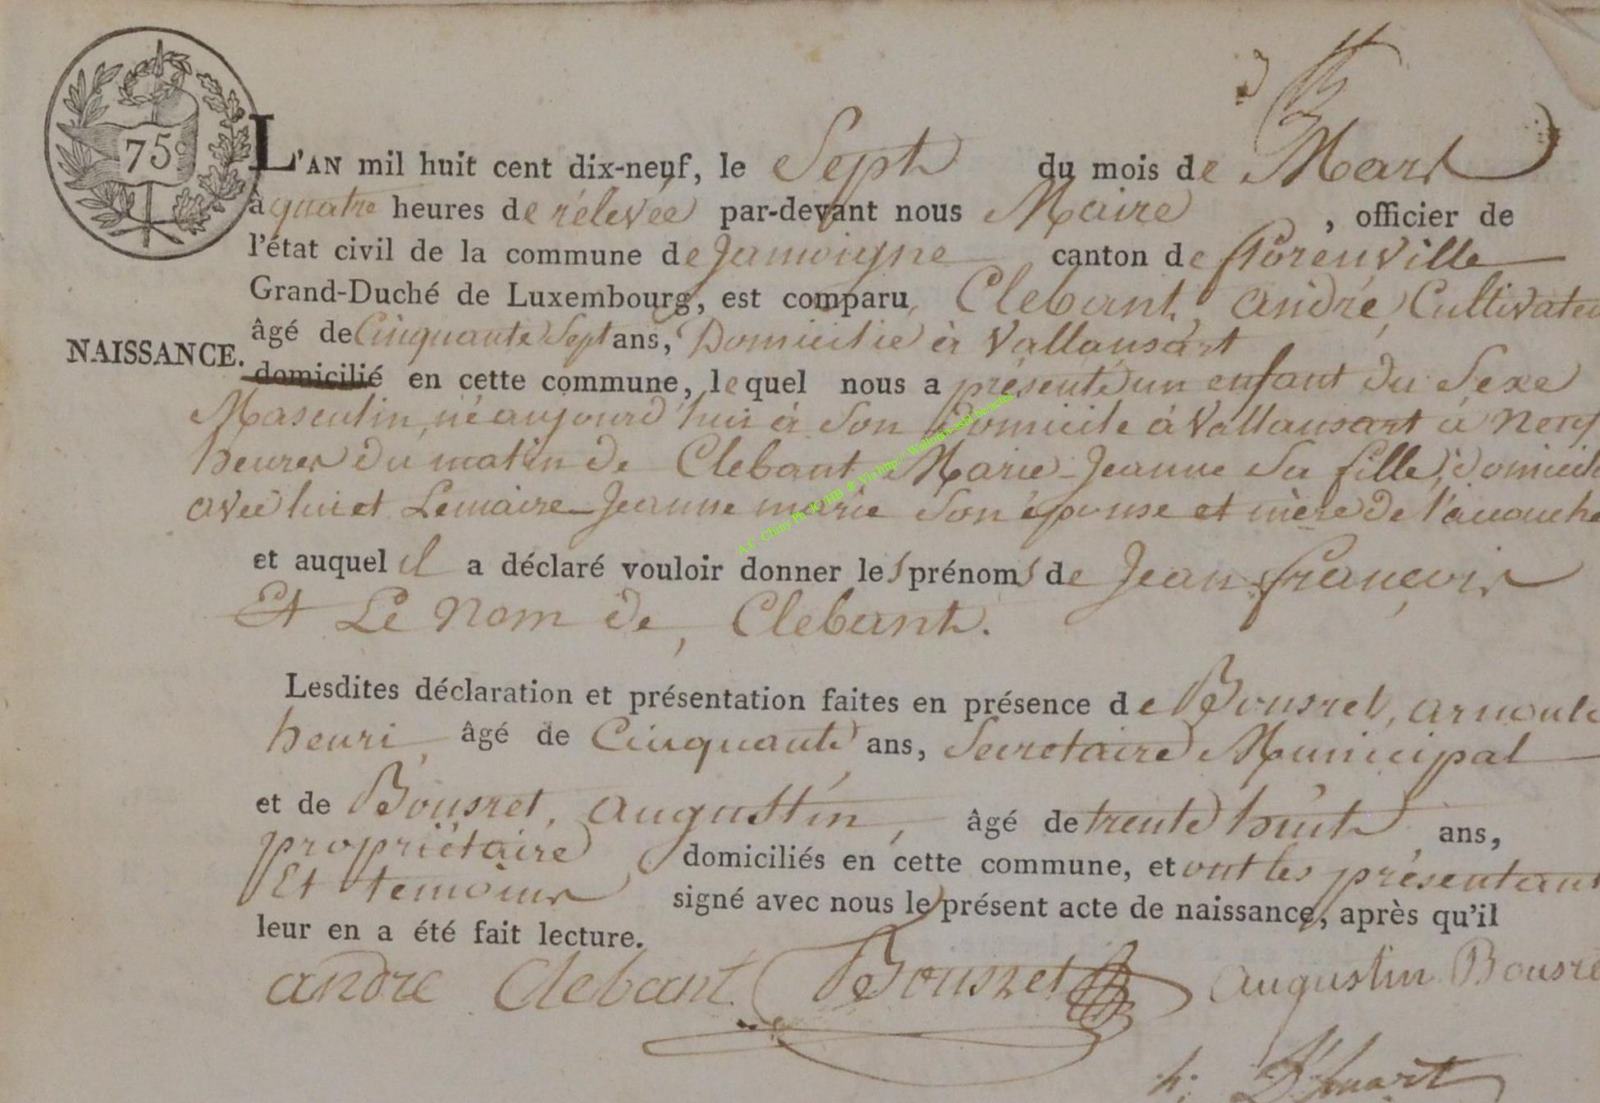 75c
L'AN mil huit cent dix-neuf, le Sept du mois de Mars
à quatre heures de rélevée par-devant nous Maire , officier de
l'état civil de la commune de Jamoigne canton de florenville
Grand-Duché de Luxembourg, est comparu Clebant, andré, Cultivateu
NAISSANCE.
âgé de Cinquante Sept ans, Domicilié à Vallansart
domicilié en cette commune, lequel nous a présenté un enfant du Sexe
Masculin, né aujourd'hui à Son Domicile à Vallansart à Neuf
heures du matin de Clebant Marie-Jeanne Sa fille, domicili
avec lui et Lemaire Jeanne marie Son épouse et mère de l'accouché
et auquel il a déclaré vouloir donner les prénoms de Jean françois
Et Le Nom de, Clebant.
Lesdites déclaration et présentation faites en présence de Bousret, arnould
henri, âgé de Cinquante ans, Secretaire Municipal
et de Bousret, augustin, âgé de trente huit ans,
propriétaire domiciliés en cette commune, et ont les présentant
Et temoins signé avec nous le présent acte de naissance, après qu'il
leur en a été fait lecture.
andré Clebant Bousret augustin Bousre